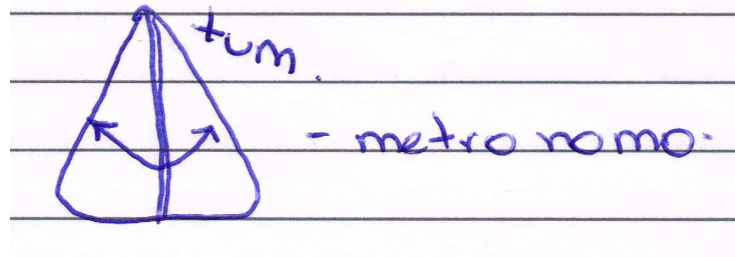 tum.
- metro nomo.